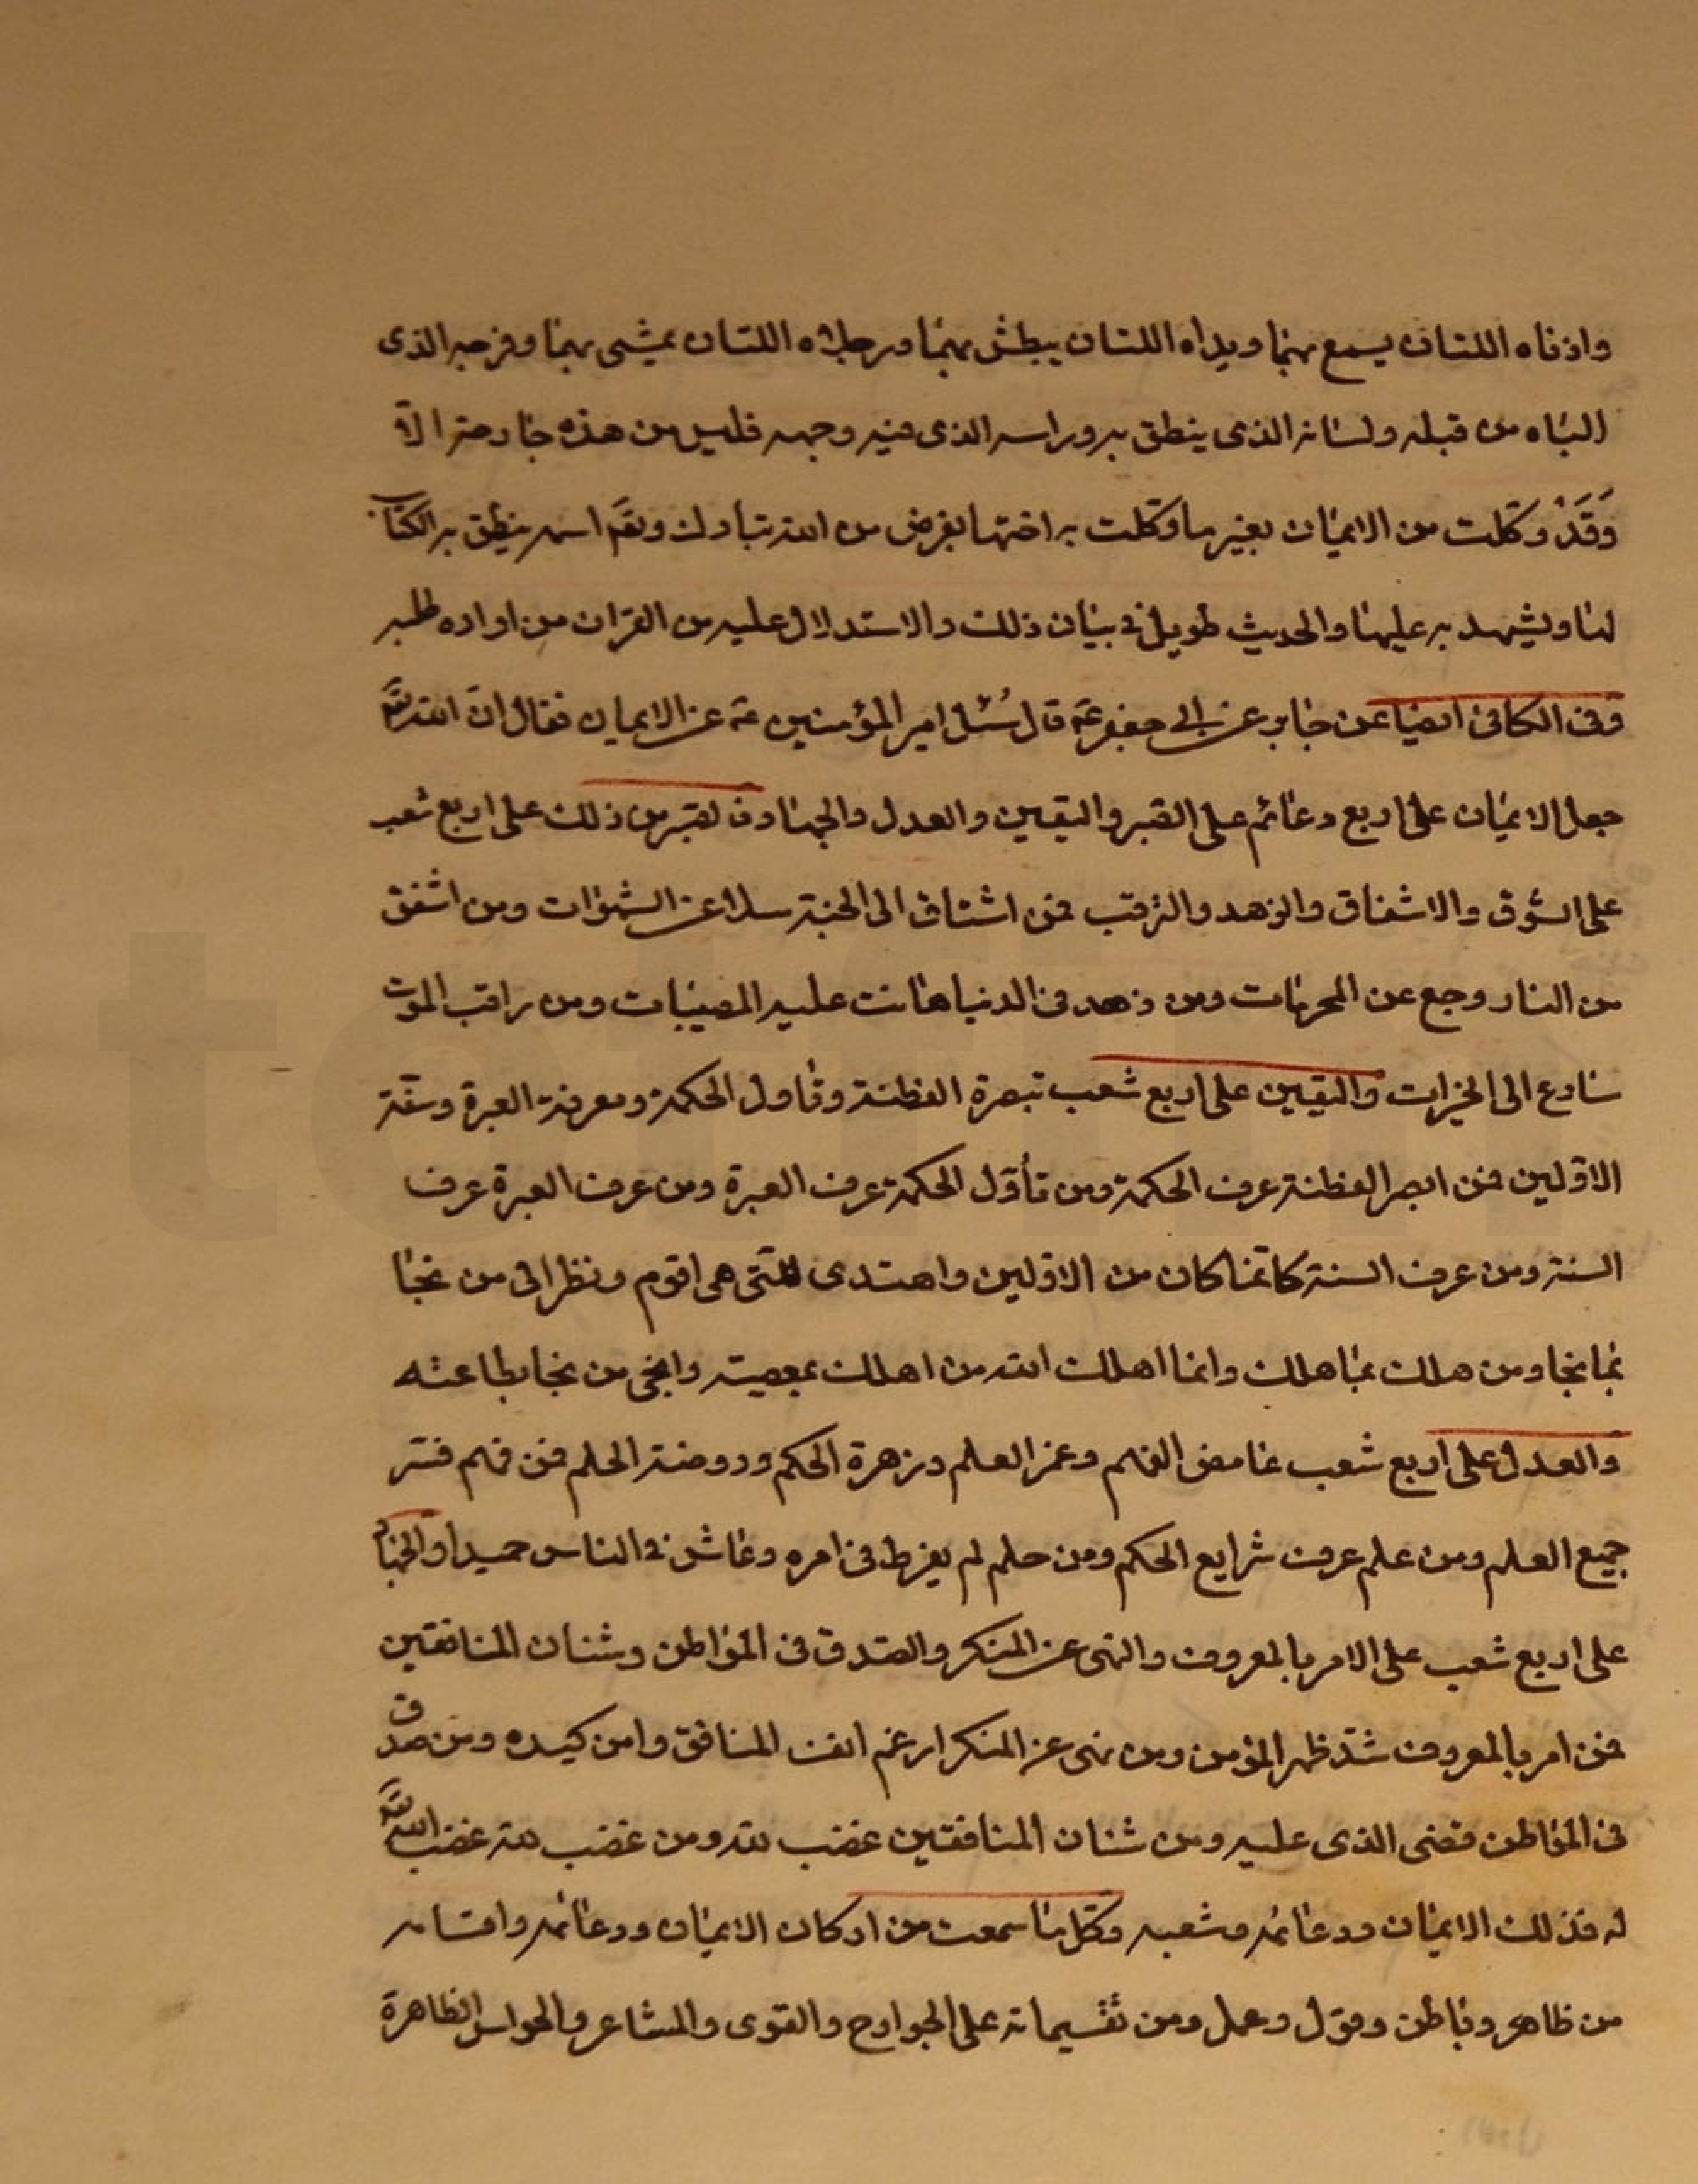 واذناه اللتان يسمع بهما ويداه اللتان يبطش بهما ورجلاه اللتان يمشى بهما وفرجه الذى
الباه من قبله ولسانه الذى ينطق به وراسه الذى فيه وجهه فليس من هذه جارحة الاّ
وَقَدْ وكلت من الايمان بغير ما وكلت به اختها بفرض من الله تبارك وتعَ اسمه ينطق به الكتاب
لها ويشهد به عليها والحديث طويل فى بيان ذلك والاستدلال عليه من القران من اراده طلبه
وفى الكافى ايضا عن جابر عن ابى جعفر عَ قال سُئل امير المؤمنين عَ عن الايمان فقال انّ الله تعَ
جعل الايمان على اربع دعائم على الصّبر واليقين والعدل والجهاد فالصّبر من ذلك على اربع شعب
على الشّوق والاشفاق والزهد والترقب فمن اشتاق الى الجنة سلا عن الشهوات ومن اشفق
من النار رجع عن المحرمات ومن زهد فى الدنيا هانت عليه المصيبات ومن راقب الموت
سارع الى الخيرات واليقين على اربع شعب تبصرة الفطنة وتأول الحكمة ومعرفة العبرة وسنّة
الاوّلين فمن ابصر الفطنة عرف الحكمة ومن تأوّل الحكمة عرف العبرة ومن عرف العبرة عرف
السنة ومن عرف السنة كانّما كان من الاوّلين واهتدى للتّى هى اقوم ونظر الى من نجا
بما نجا ومن هلك بما هلك وانما اهلك الله من اهلك بمعصيته وانجى من نجا بطاعته
والعدل على اربع شعب غامض الفهم وغمر العلم وزهرة الحكم وروضة الحلم فمن فهم فسّر
جميع العلم ومن علم عرف شرايع الحكم ومن حلم لم يفرط فى امره وعاش فى الناس حميدا والجهاد
على اربع شعب على الامر بالمعروف والنهى عن المنكر والصّدق فى المواطن وشنان المنافقين
فمن امر بالمعروف شدّ ظهر المؤمن ومن نهى عن المنكر ارغم انف المنافق وامن كيده ومن صدق
فى المواطن قضى الذى عليه ومن شنان المنافقين غضب لله ومن غضب لله غضب الله تعَ
له فذلك الايمان ودعائمه وشعبه وكلّ ما سمعت من اركان الايمان ودعائمه واقسامه
من ظاهر وباطن وقول وعمل ومن تقسيماته على الجوارح والقوى والمشاعر والحواس الظاهرة